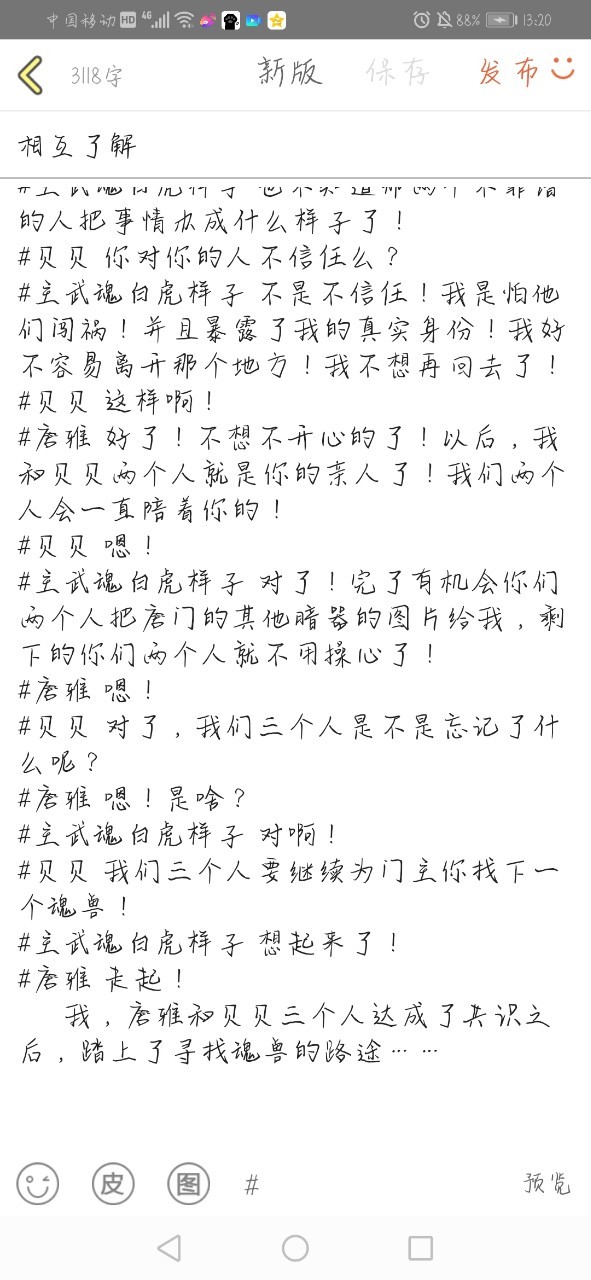 中国移动 HD 4G 88% 13:20
3118字 新版 保存 发布
相互了解
#主武魂白虎样子 也不知道那两个不靠谱
的人把事情办成什么样子了！
#贝贝 你对你的人不信任么？
#主武魂白虎样子 不是不信任！我是怕他
们闯祸！并且暴露了我的真实身份！我好
不容易离开那个地方！我不想再回去了！
#贝贝 这样啊！
#唐雅 好了！不想不开心的了！以后，我
和贝贝两个人就是你的亲人了！我们两个
人会一直陪着你的！
#贝贝 嗯！
#主武魂白虎样子 对了！完了有机会你们
两个人把唐门的其他暗器的图片给我，剩
下的你们两个人就不用操心了！
#唐雅 嗯！
#贝贝 对了，我们三个人是不是忘记了什
么呢？
#唐雅 嗯！是啥？
#主武魂白虎样子 对啊！
#贝贝 我们三个人要继续为门主你找下一
个魂兽！
#主武魂白虎样子 想起来了！
#唐雅 走起！
我，唐雅和贝贝三个人达成了共识之
后，踏上了寻找魂兽的路途……
皮 图 # 预览